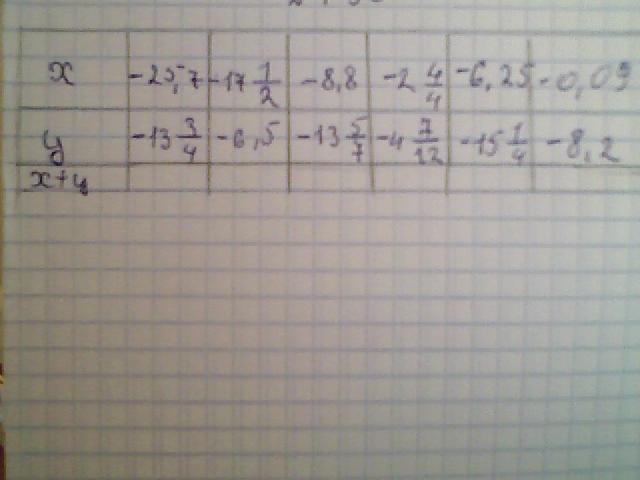 x -25,7 -17 1/2 -8,8 -2 4/4 -6,25 -0,09
y -13 3/4 -6,5 -13 5/7 -4 7/12 -15 1/4 -8,2
x+y